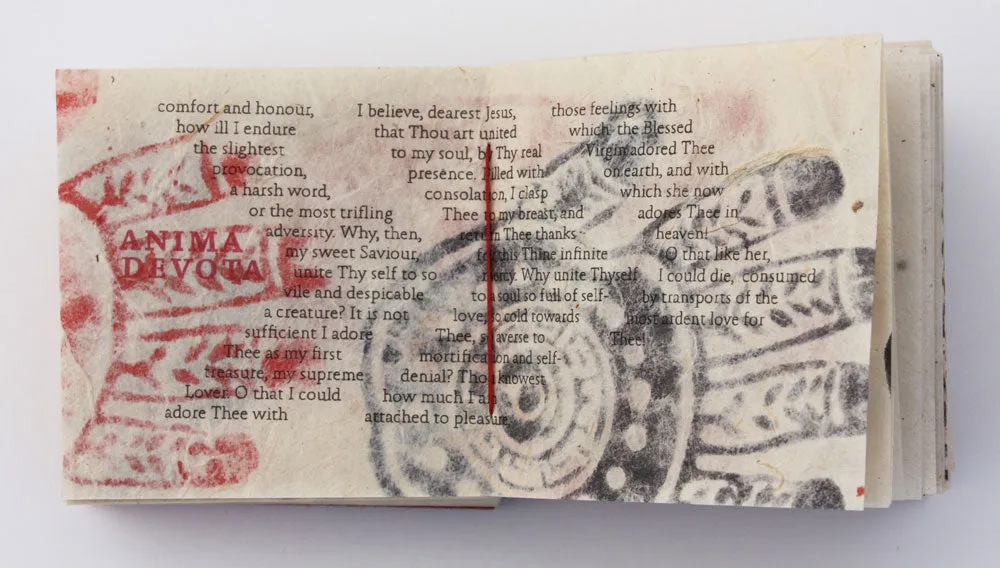 ANIMA
DEVOTA
comfort and honour,
how ill I endure
the slightest
provocation,
a harsh word,
or the most trifling
adversity. Why, then,
my sweet Saviour,
unite Thy self to so
vile and despicable
a creature? It is not
sufficient I adore
Thee as my first
treasure, my supreme
Lover. O that I could
adore Thee with
I believe, dearest Jesus,
that Thou art united
to my soul, by Thy real
presence. Filled with
consolation, I clasp
Thee to my breast, and
return Thee thanks
for this Thine infinite
mercy. Why unite Thyself
to a soul so full of self-
love, so cold towards
Thee, so averse to
mortification and self-
denial? Thou knowest
how much I am
attached to pleasure,
those feelings with
which the Blessed
Virgin adored Thee
on earth, and with
which she now
adores Thee in
heaven!
O that like her,
I could die, consumed
by transports of the
most ardent love for
Thee!